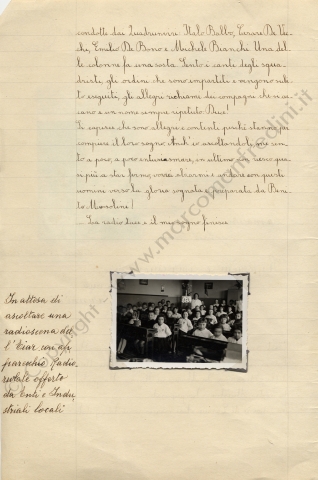 condotte dai Quadrumviri Italo Balbo, Cesare De Vec
chi, Emilio De Bono e Michele Bianchi. Una del
le colonne fa una sosta. Sento i canti degli squa
dristi, gli ordini che sono impartiti e vengono subi
to eseguiti, gli allegri richiami dei compagni che si cer
cano e un nome sempre ripetuto: Duce!
Si capisce che sono allegri e contenti perchè stanno per
compiere il loro sogno. Anch'io ascoltandoli mi sen
to a poco, a poco entusiasmare, in ultimo non riesco qua
si più a star fermo, vorrei alzarmi e andare con questi
uomini verso la gloria sognata e preparata da Beni
to Mussolini!
La radio tace e il mio sogno finisce
In attesa di
ascoltare una
radioscena del
l'Eiar con ap
parecchio Radio
rurale offerto
da Enti e Indu
striali locali
© copyright - www.marcomanfredini.it